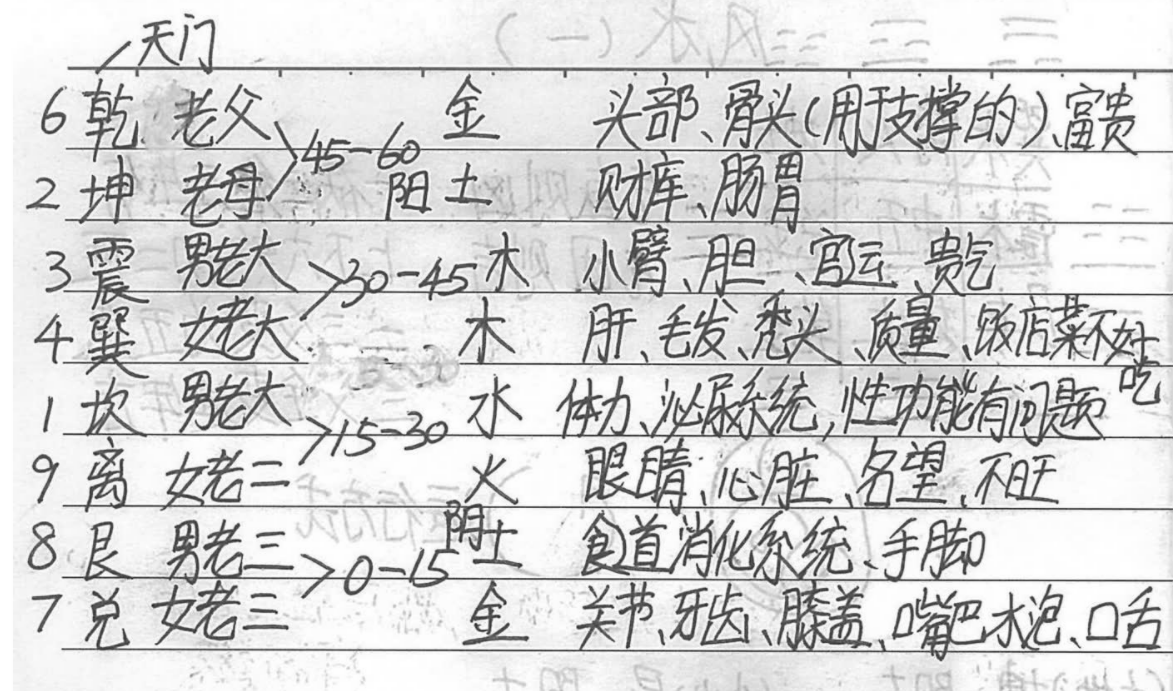 天门
6 乾 老父 >45-60 金 头部、骨头(用于支撑的)、富贵
2 坤 老母 阳土 财库、肠胃
3 震 男老大 >30-45 木 小臂、胆、官运、贵气
4 巽 女老大 木 肝、毛发、秃头、质量、饭店菜不好吃
1 坎 男老大 >15-30 水 体力、泌尿系统,性功能有问题
9 离 女老二 火 眼睛、心脏、名望、不旺
8 艮 男老三 >0-15 阴土 食道消化系统、手脚
7 兑 女老三 金 关节、牙齿、膝盖、嘴巴水泡、口舌